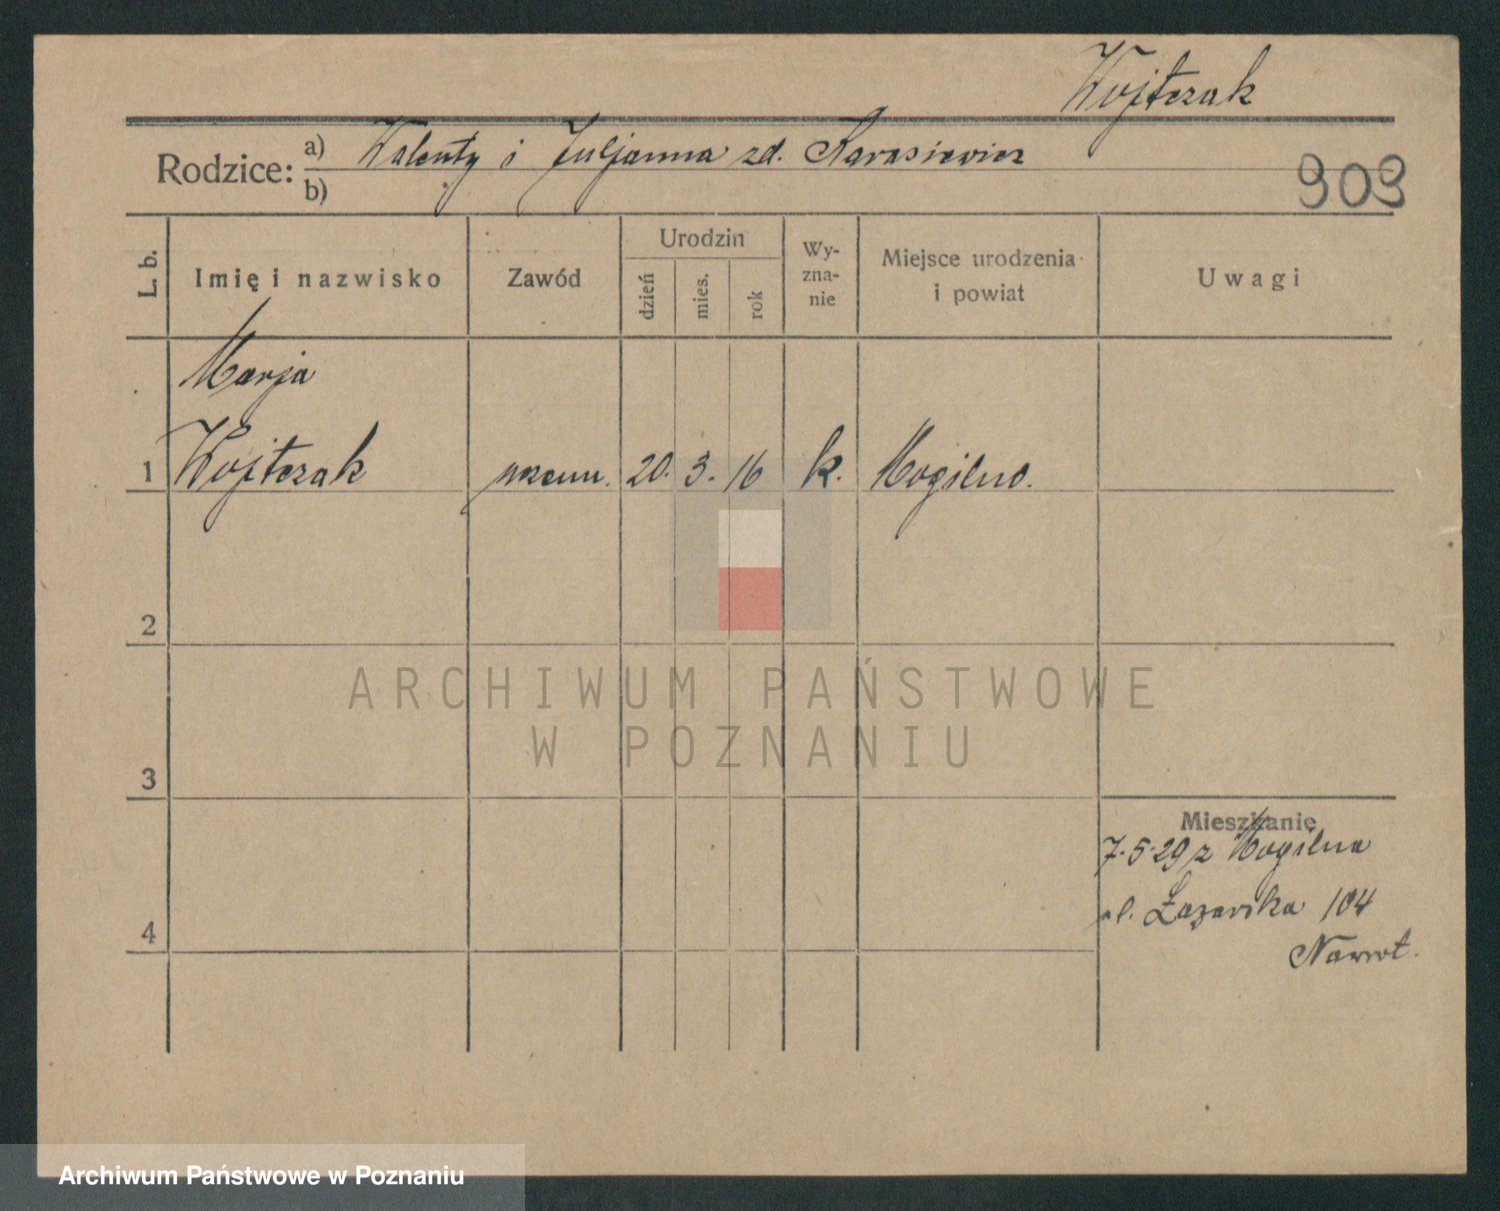 Wojtczak
Rodzice: a) Walenty i Juljanna zd. Karasiewicz
b)
909
L. b.
Imię i nazwisko
Zawód
Urodzin
dzień
mies.
rok
Wy-
zna-
nie
Miejsce urodzenia
i powiat
Uwagi
Marja
1 Wojtczak 20. 3. 16 k. Mogilno.
2
ARCHIWUM PAŃSTWOWE
W POZNANIU
3
Mieszkanie
7.5.29 z Mogilna
ul. Łazarska 104
Nawrot.
4
Archiwum Państwowe w Poznaniu